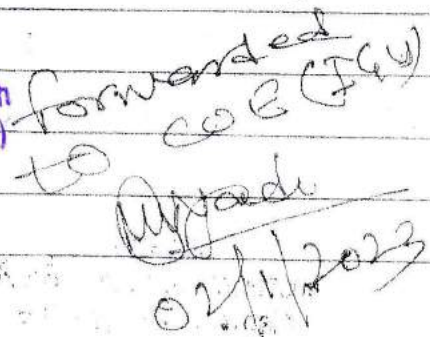 forwarded
to COE (IGU)
02/11/2023